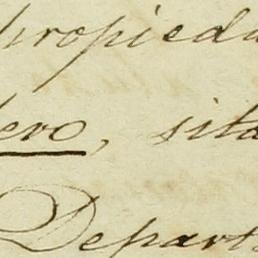 propieda
ero, sita
Departa